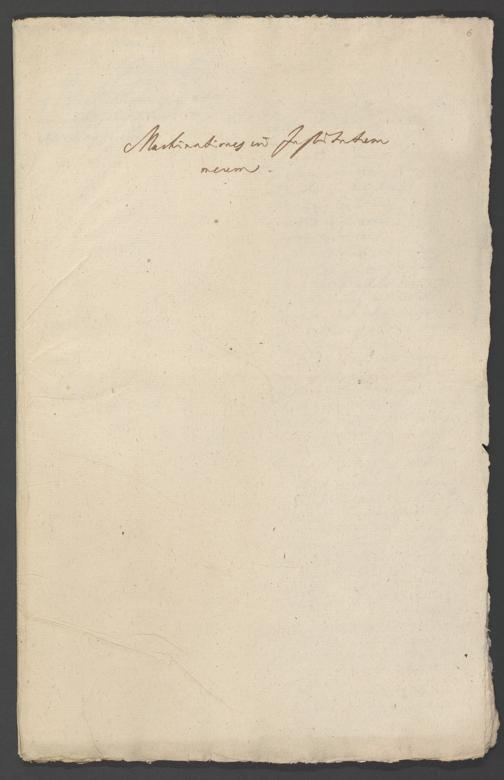 6
Machinationes in Institutum
meum.